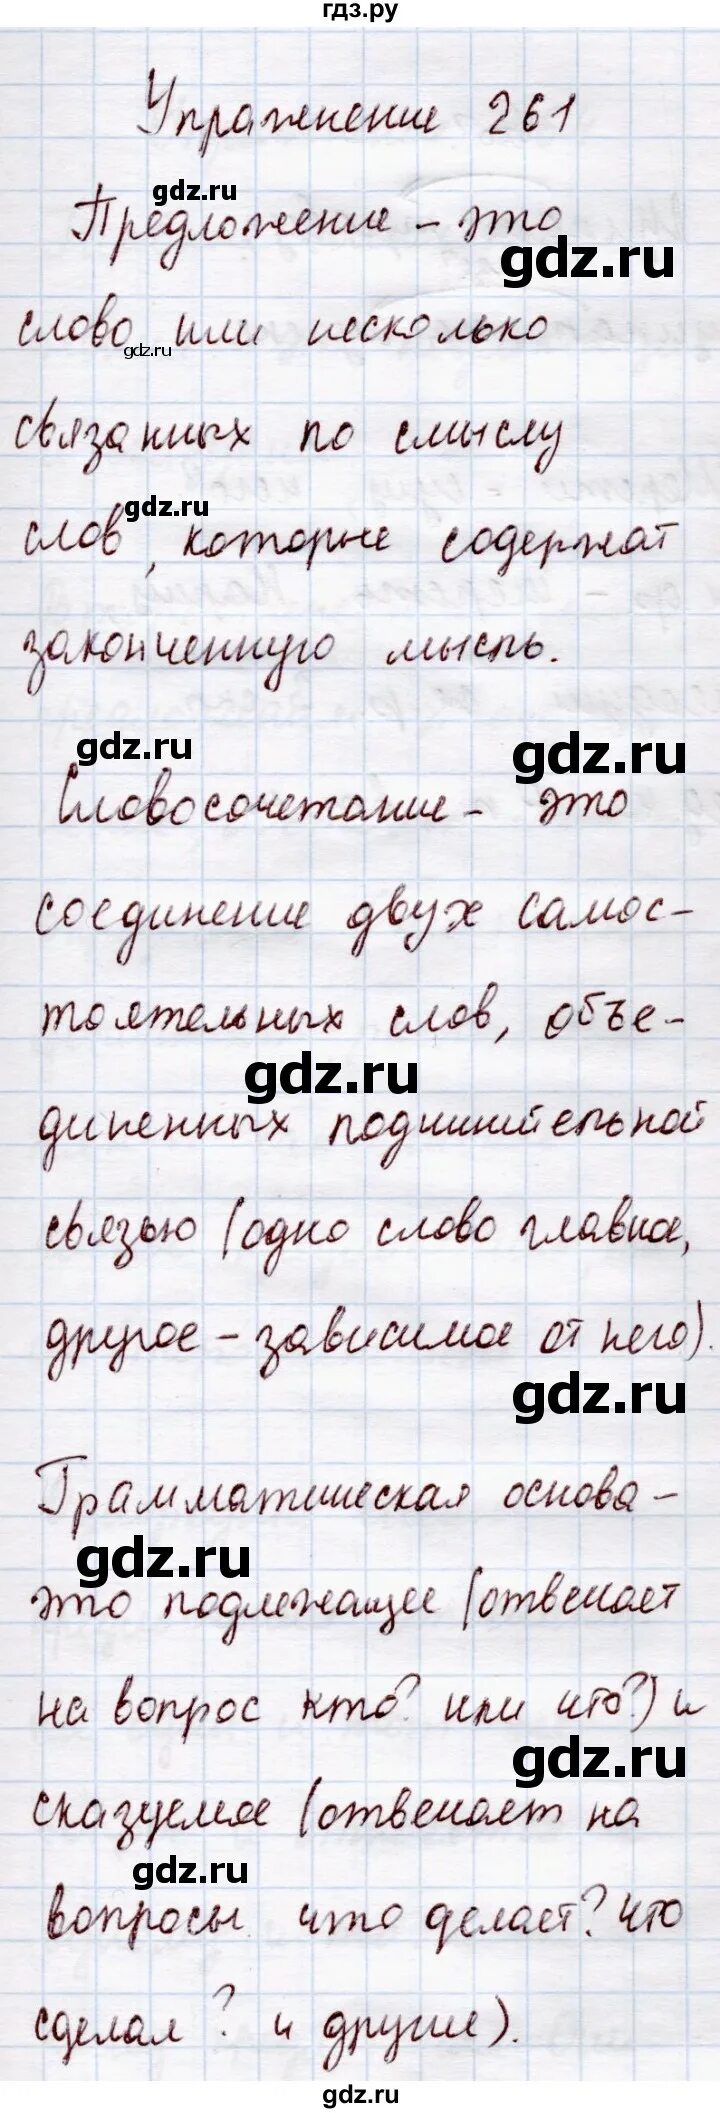 гдз.ру
Упражнение 261
gdz.ru
Предложение - это
gdz.ru
слово или несколько
gdz.ru
связанных по смыслу
gdz.ru
слов, которые содержат
законченную мысль.
gdz.ru gdz.ru
Словосочетание - это
соединение двух самос-
тоятельных слов, объе-
gdz.ru
диненных подчинительной
связью (одно слово главное,
другое - зависимое от него).
gdz.ru
Грамматическая основа -
gdz.ru
это подлежащее (отвечает
на вопрос кто? или что?) и
gdz.ru
сказуемое (отвечает на
gdz.ru
вопросы что делает? что
сделал? и другие).
gdz.ru